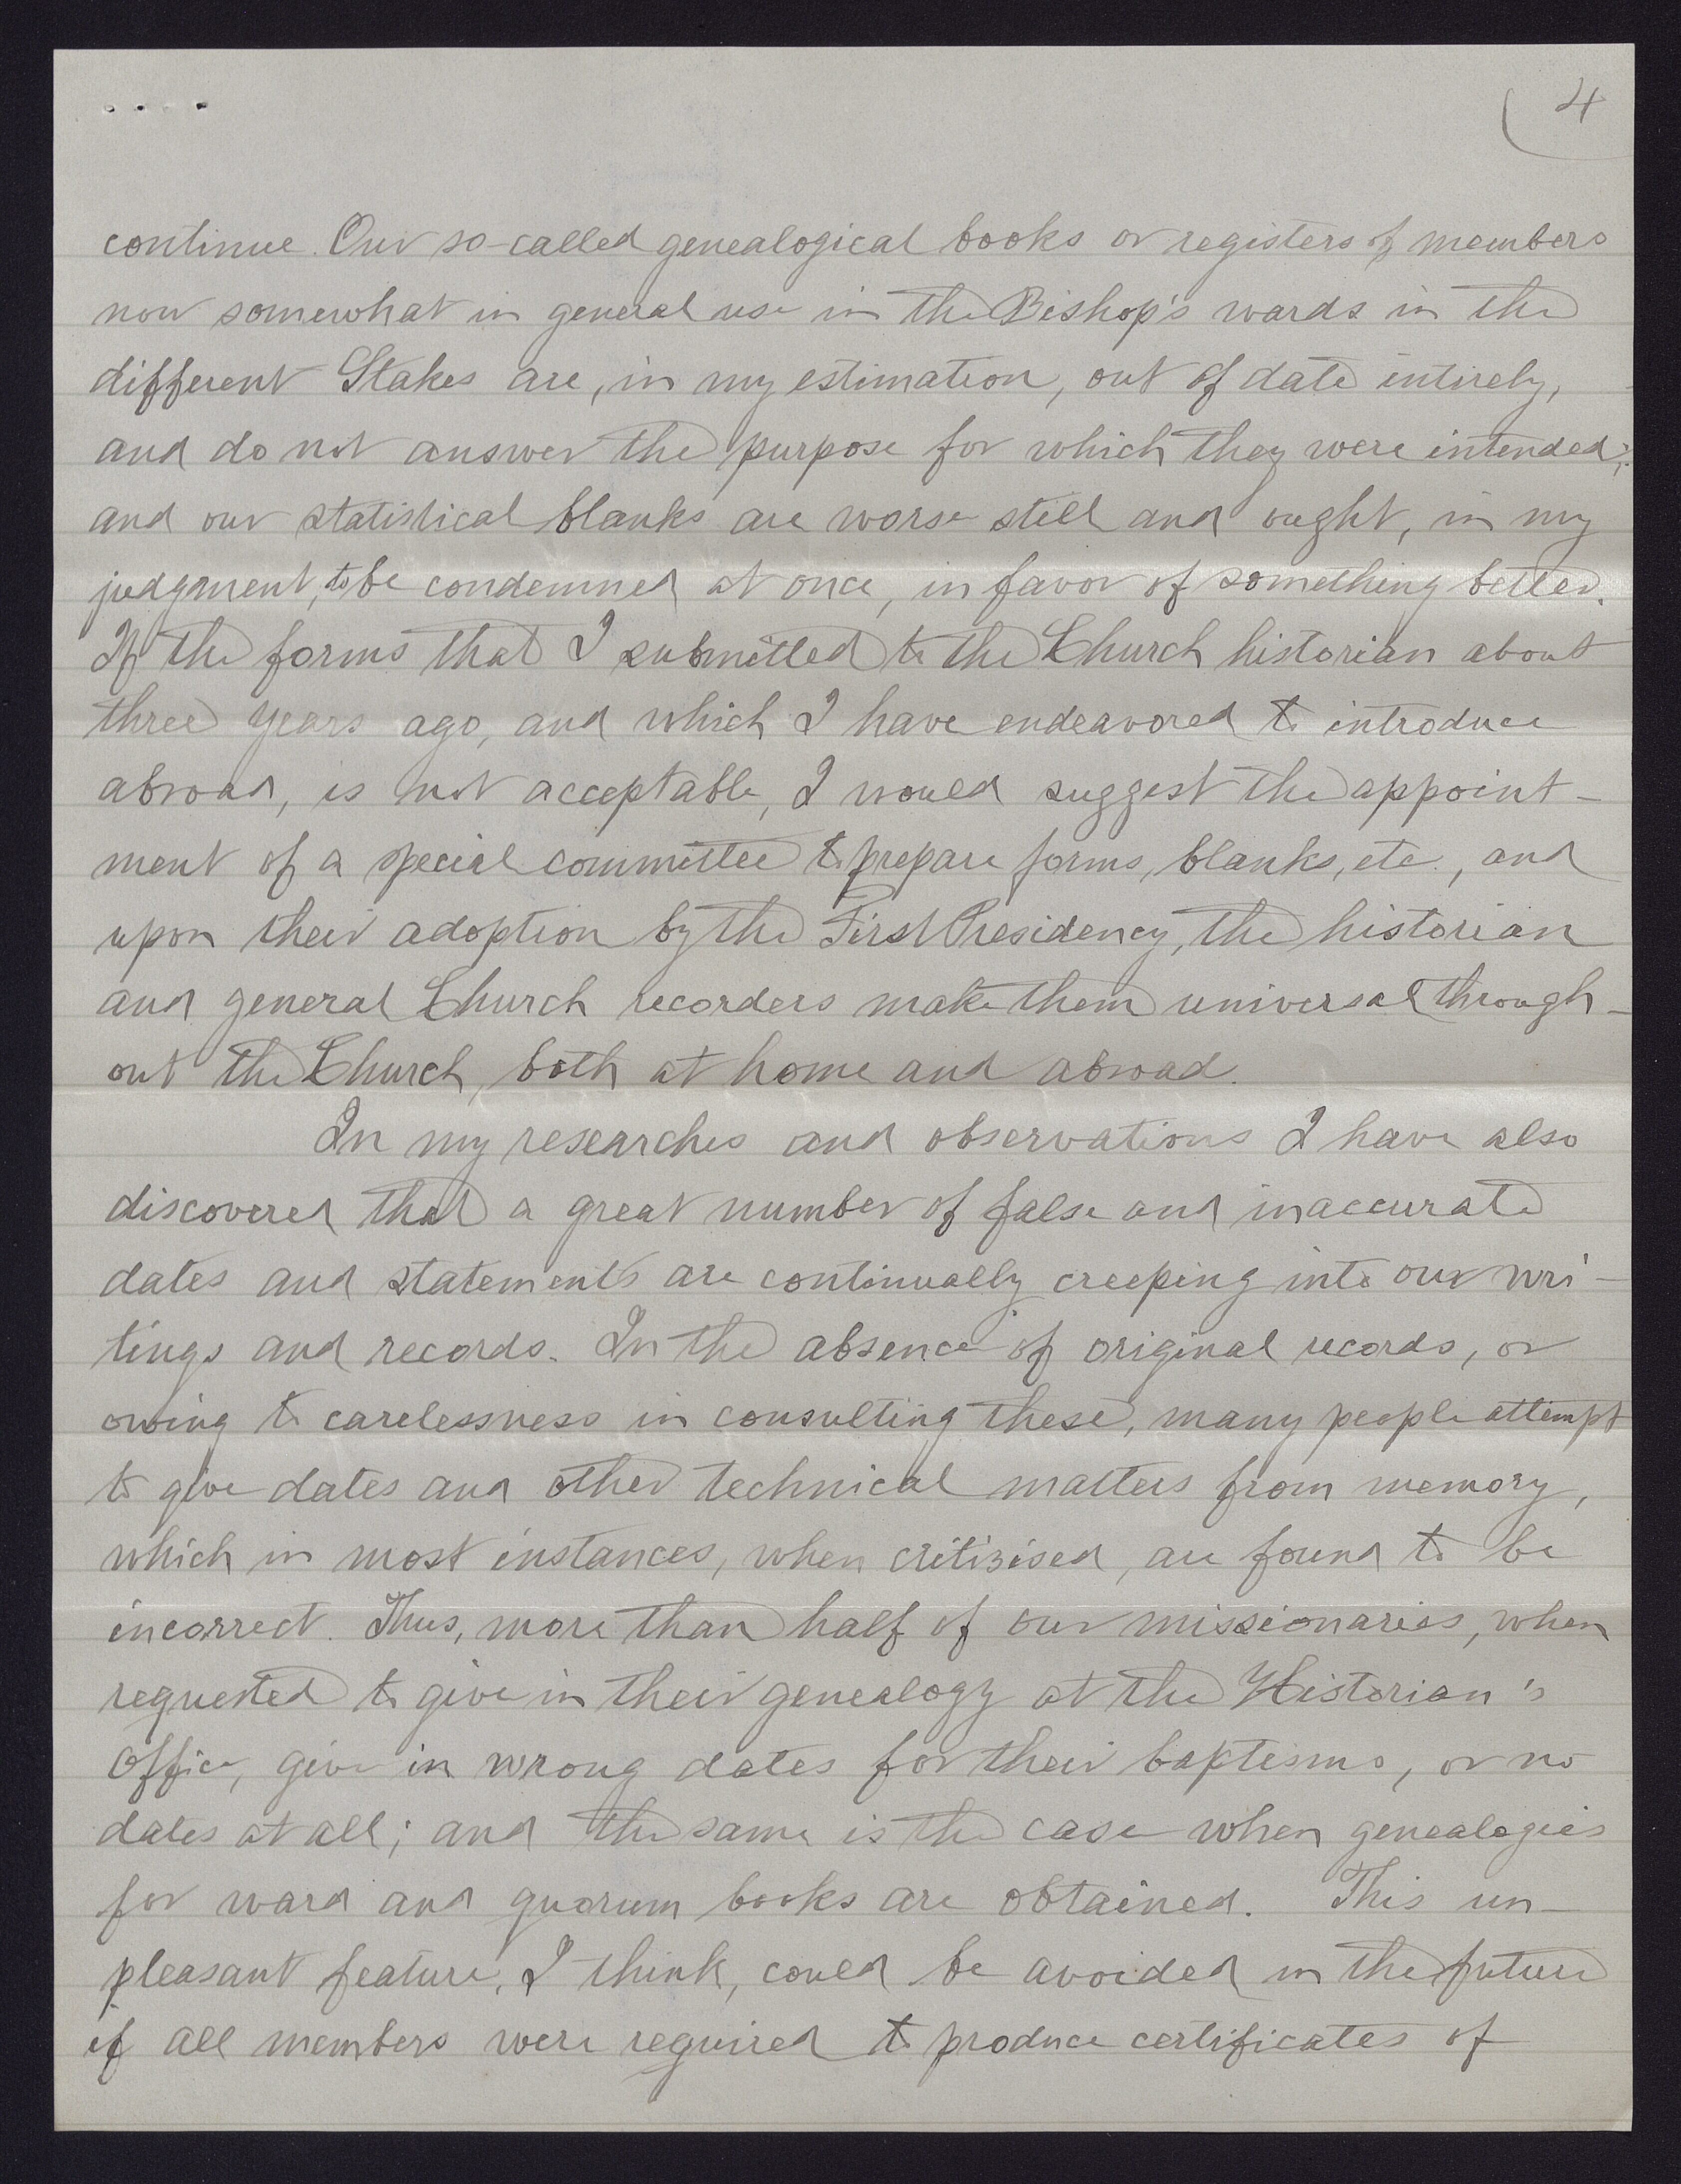 4
continue. Our so-called genealogical books or registers of members
now somewhat in general use in the Bishop's wards in the
different Stakes are, in my estimation, out of date intirely,
and do not answer the purpose for which they were intended;
and our statistical blanks are worse still and ought, in my
judgment, to be condemned at once, in favor of something better.
If the forms that I submitted to the Church historian about
three years ago, and which I have endeavored to introduce
abroad, is not acceptable, I would suggest the appoint-
ment of a special committee to prepare forms, blanks, etc., and
upon their adoption by the First Presidency, the historian
and general Church recorders make them universal through-
out the Church, both at home and abroad.
In my researches and observations I have also
discovered that a great number of false and inaccurate
dates and statements are continually creeping into our wri-
tings and records. In the absence of original records, or
owing to carelessness in consulting these, many people attempt
to give dates and other technical matters from memory,
which in most instances, when critizised, are found to be
incorrect. Thus, more than half of our missionaries, when
requested to give in their genealogy at the Historian's
Office, give in wrong dates for their baptisms, or no
dates at all; and the same is the case when genealogies
for ward and quorum books are obtained. This un-
pleasant feature, I think, could be avoided in the future
if all members were required to produce certificates of